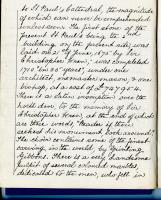 to St Paul's Cathedral, the magnitude
of which can never be comprehended
unless seen. The first stone of the
present St Paul's being the
building on the present site, was
laid on 21 June, 1675 by Sir
Christopher Wren; was completed
1710 in 35 years, under one
architect, one master mason, & one
bishop, at a cost of £747,954.
There is a Latin inscription over the
north door to the memory of Sir
Christopher Wren, at the end of which
are these words "Reader if thou
seekest his monument look around".
The choir contains some of the finest
carving in the world by Grinling
Gibbons. There is a very handsome
pulpit of several coloured marbles
dedicated to the men, who fell in